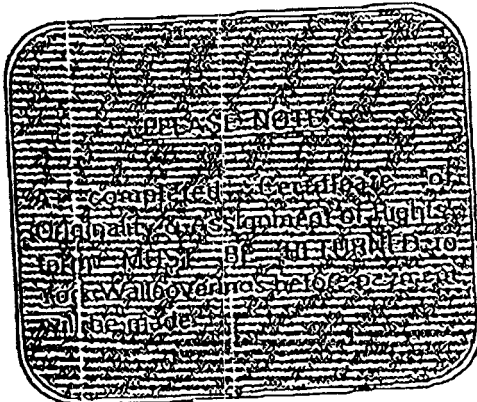 PLEASE NOTE
A completed Certificate of
Originality & Assignment of Rights
form MUST BE RETURNED to
Wallcoverings before payment
will be made